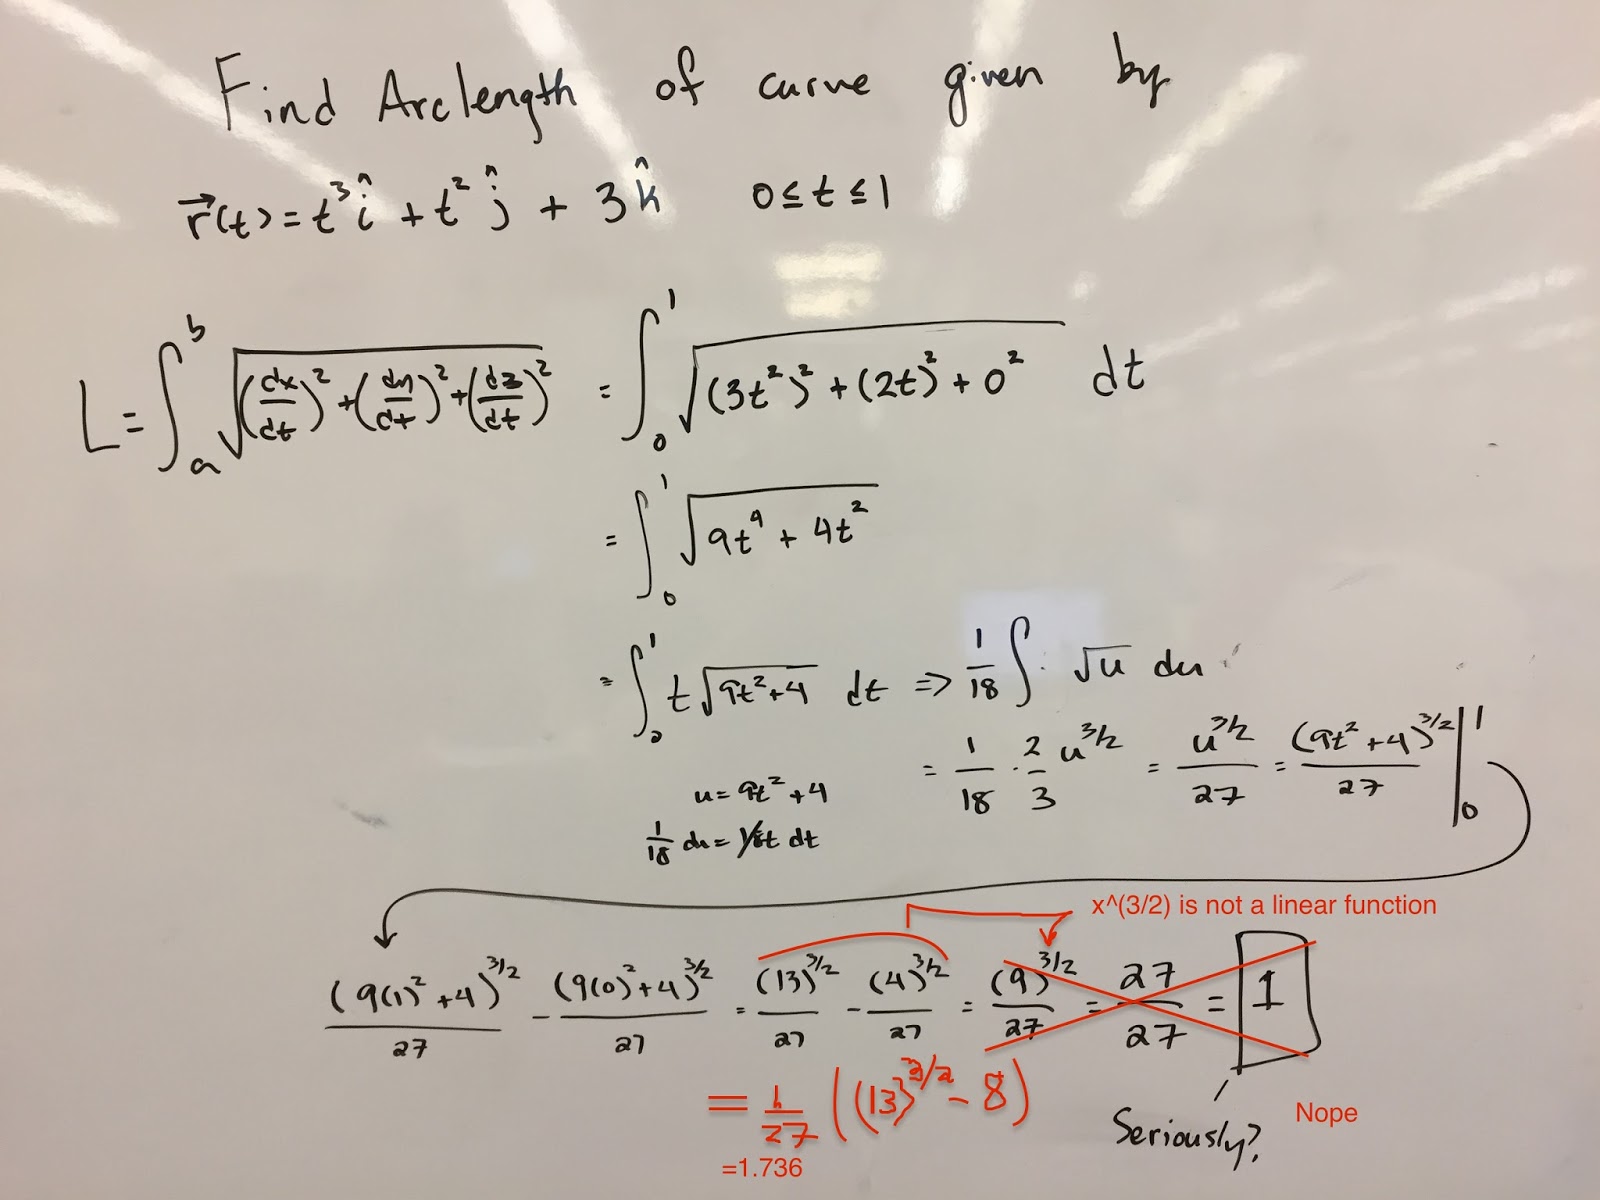 Find Arclength of curve given by
r⃗(t) = t³î + t²ĵ + 3k̂   0 ≤ t ≤ 1
L = ∫_a^b √((dx/dt)² + (dy/dt)² + (dz/dt)²) = ∫_0^1 √((3t²)² + (2t)² + 0²) dt
= ∫_0^1 √(9t⁴ + 4t²)
= ∫_0^1 t√(9t²+4) dt => 1/18 ∫ √u du
= 1/18 · 2/3 u^(3/2) = u^(3/2)/27 = (9t²+4)^(3/2)/27 |_0^1
u = 9t² + 4
1/18 du = 18t dt
x^(3/2) is not a linear function
(9(1)²+4)^(3/2)/27 - (9(0)²+4)^(3/2)/27 = (13)^(3/2)/27 - (4)^(3/2)/27 = (9)^(3/2)/27 = 27/27 = 1
= 1/27 ((13)^(3/2) - 8)
=1.736
Seriously?
Nope